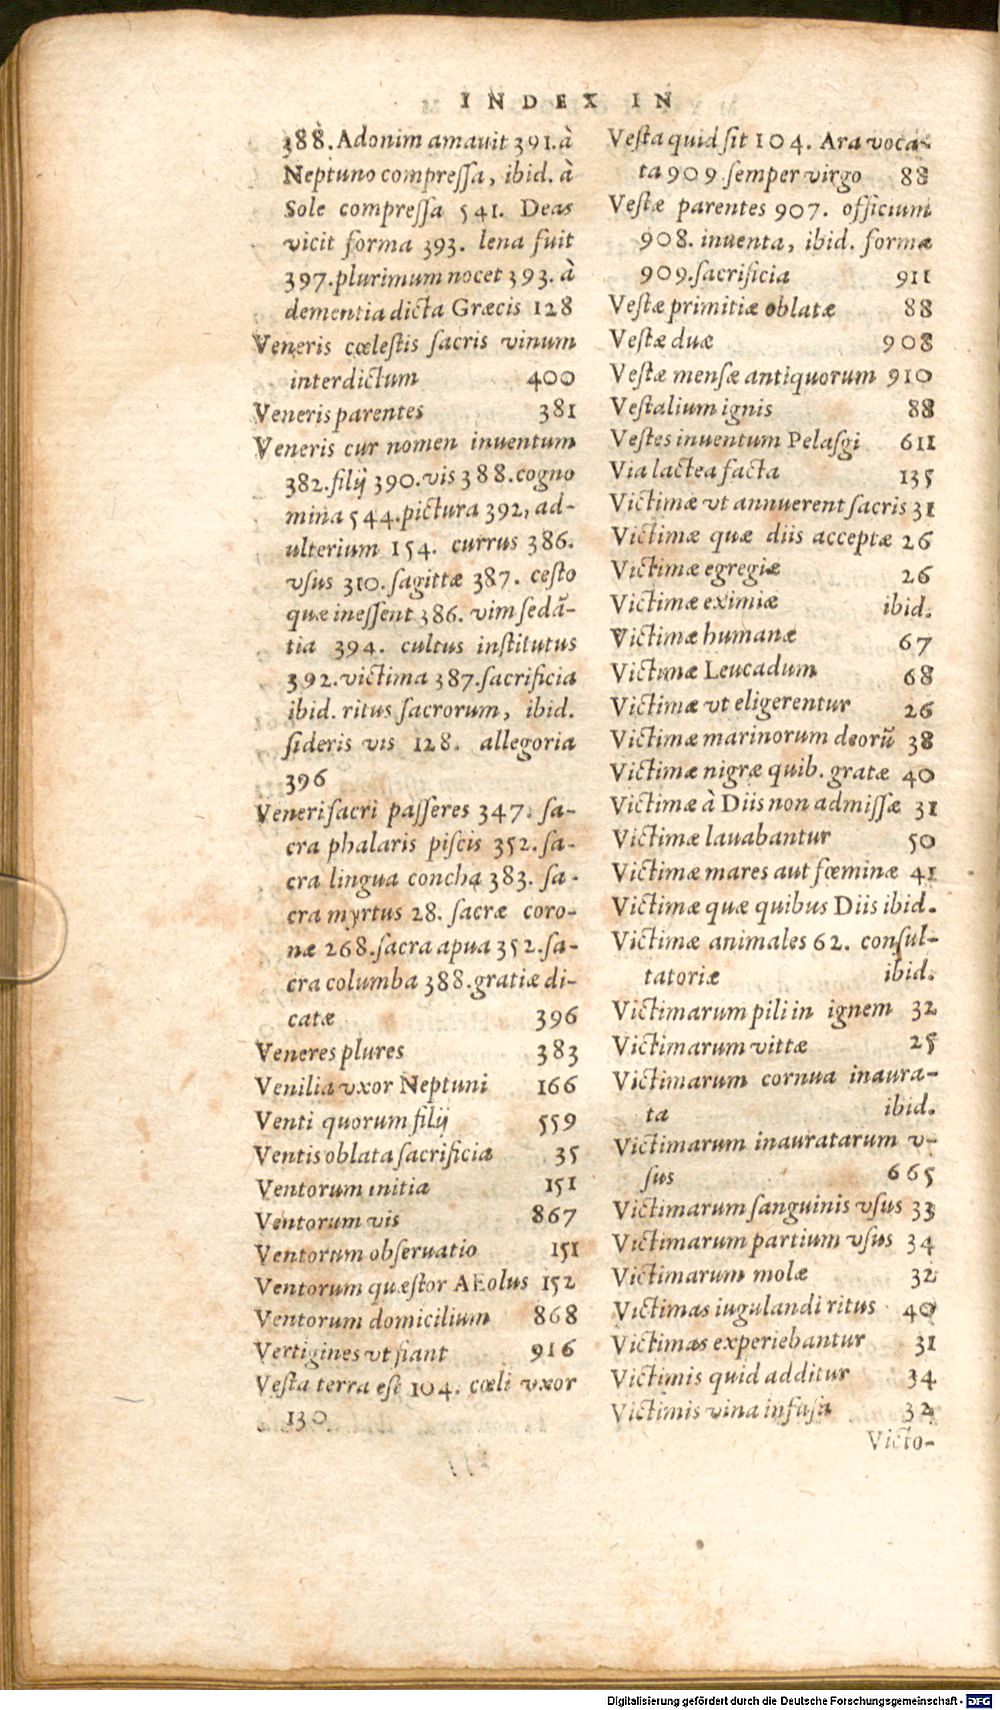 INDEX IN
388. Adonim amauit 391. à
Neptuno compreſſa, ibid. à
Sole compreſſa 541. Deas
vicit forma 393. lena fuit
397. plurimum nocet 393. à
dementia dicta Græcis 128
Veneris cœleſtis ſacris vinum
interdictum 400
Veneris parentes 381
Veneris cur nomen inuentum
382. filij 390. vis 388. cogno
mina 544. pictura 392, ad-
ulterium 154. currus 386.
vſus 310. ſagittæ 387. ceſto
quæ ineſſent 386. vim ſedã-
tia 394. cultus inſtitutus
392. victima 387. ſacrificia
ibid. ritus ſacrorum, ibid.
ſideris vis 128. allegoria
396
Veneri ſacri paſſeres 347. ſa-
cra phalaris piſcis 352. ſa-
cra lingua concha 383. ſa-
cra myrtus 28. ſacræ coro-
næ 268. ſacra apua 352. ſa-
cra columba 388. gratiæ di-
catæ 396
Veneres plures 383
Venilia vxor Neptuni 166
Venti quorum filij 559
Ventis oblata ſacrificia 35
Ventorum initia 151
Ventorum vis 867
Ventorum obſeruatio 151
Ventorum quæſtor AEolus 152
Ventorum domicilium 868
Vertigines vt fiant 916
Veſta terra eſt 104. cœli vxor
130
Veſta quid ſit 104. Ara voca-
ta 909. ſemper virgo 88
Veſtæ parentes 907. officium
908. inuenta, ibid. formæ
909. ſacrificia 911
Veſtæ primitiæ oblatæ 88
Veſtæ duæ 908
Veſtæ menſæ antiquorum 910
Veſtalium ignis 88
Veſtes inuentum Pelaſgi 611
Via lactea facta 135
Victimæ vt annuerent ſacris 31
Victimæ quæ diis acceptæ 26
Victimæ egregiæ 26
Victimæ eximiæ ibid.
Victimæ humanæ 67
Victimæ Leucadum 68
Victimæ vt eligerentur 26
Victimæ marinorum deorũ 38
Victimæ nigræ quib. gratæ 40
Victimæ à Diis non admiſſæ 31
Victimæ lauabantur 50
Victimæ mares aut fœminæ 41
Victimæ quæ quibus Diis ibid.
Victimæ animales 62. conſul-
tatoriæ ibid.
Victimarum pili in ignem 32
Victimarum vittæ 25
Victimarum cornua inaura-
ta ibid.
Victimarum inauratarum v-
ſus 665
Victimarum ſanguinis vſus 33
Victimarum partium vſus 34
Victimarum molæ 32
Victimas iugulandi ritus 40
Victimas experiebantur 31
Victimis quid additur 34
Victimis vina infuſa 32
Victo-
Digitalisierung gefördert durch die Deutsche Forschungsgemeinschaft - DFG